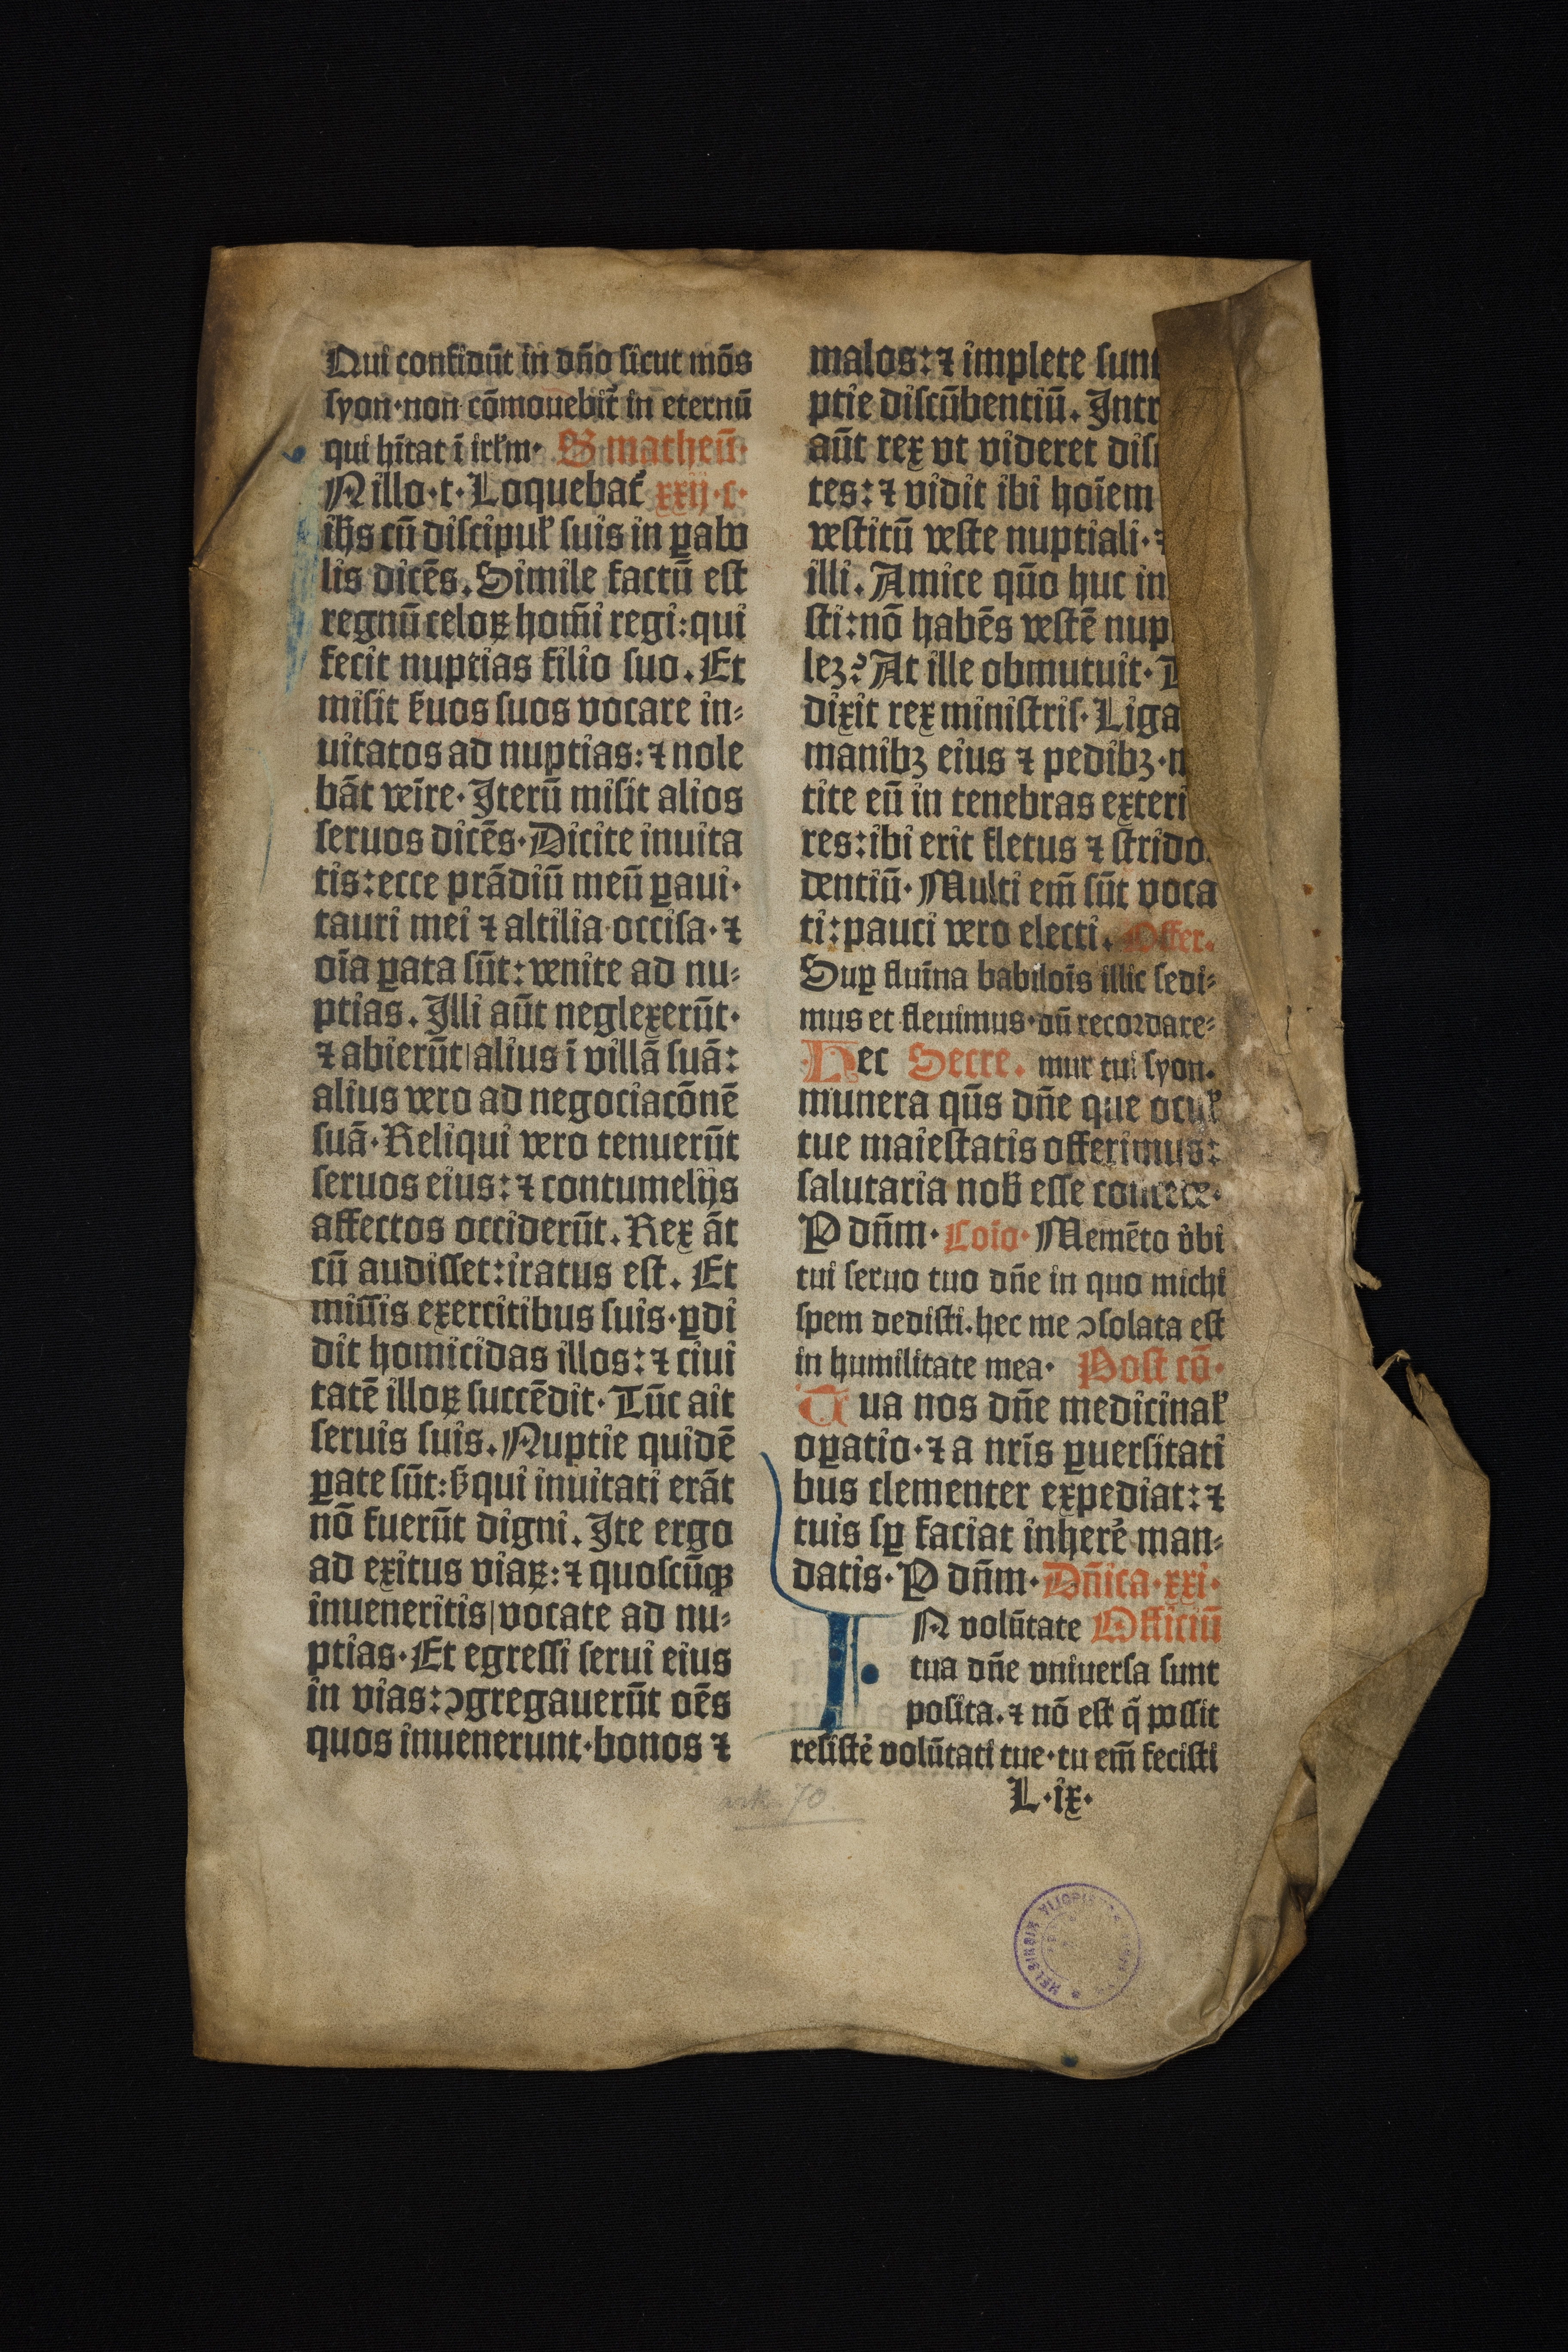 Qui confidūt in dño sicut mōs
syon·non cōmouebit̄ in eternū
qui hītat ī irl̄m· S matheū·
N illo·t·Loquebat̄ xxij·c·
ih̄s cū discipul̄ suis in ꝑabo
lis dicēs. Simile factū est
regnū celoꝝ hom̄i regi:qui
fecit nuptias filio suo. Et
misit ẜuos suos vocare in⸗
uitatos ad nuptias:⁊ nole
bāt veīre· Iterū misit alios
seruos dicēs·Dicite inuita
tis:ecce prādiū meū ꝑaui·
tauri mei ⁊ altilia occisa·⁊
oīa ꝑata sūt: venite ad nu⸗
ptias. Illi aūt neglexerūt·
⁊ abierūt|alius ī villā suā:
alius vero ad negociacōnē
suā·Reliqui vero tenuerūt
seruos eius:⁊ contumelijs
affectos occiderūt. Rex āt
cū audisset:iratus est. Et
missis exercitibus suis·ꝑdi
dit homicidas illos:⁊ ciui
tatē illoꝝ succēdit· Tūc ait
seruis suis. Nuptie quidē
ꝑate sūt:ẜ qui inuitati erāt
nō fuerūt digni. Ite ergo
ad exitus viaꝝ:⁊ quoscūqꝫ
inueneritis|vocate ad nu⸗
ptias·Et egressi serui eius
in vias:ↄgregauerūt oēs
quos inuenerunt·bonos ⁊
malos:⁊ implete sunt
ptie discūbentiū. Intr
aūt rex vt videret dis
tes:⁊ vidit ibi hoīem
vestitū veste nuptiali·⁊
illi. Amice qūo huc in
sti:nō habēs vestē nup
leꝫ? At ille obmutuit·
dixit rex ministris·Liga
manibꝫ eius ⁊ pedibꝫ·
tite eū in tenebras exteri
res:ibi erit fletus ⁊ strido
dentiū· Multi em̄ sūt voca
ti:pauci vero electi. Offer.
Suꝑ fluīna babiloīs illic sedi⸗
mus et fleuimus·dū recordare⸗
Hec Secre. mur tui syon.
munera qūs dñe que ocul̄
tue maiestatis offerimus:
salutaria nob̄ esse concede·
P dn̄m· Coīo· Memēto v̓bi
tui seruo tuo dñe in quo michi
spem dedisti.hec me ↄsolata est
in humilitate mea· Post cō·
Tua nos dñe medicinal̄
oꝑatio·⁊ a nr̄is ꝑuersitati
bus clementer expediat:⁊
tuis sꝑ faciat inherē man⸗
datis· P dn̄m· Dñica·xxi·
IN volūtate Officiū
tua dñe vniuersa sunt
posita.⁊ nō est q̄ possit
resistē volūtati tue·tu em̄ fecisti
L·ix·
ark. 70.